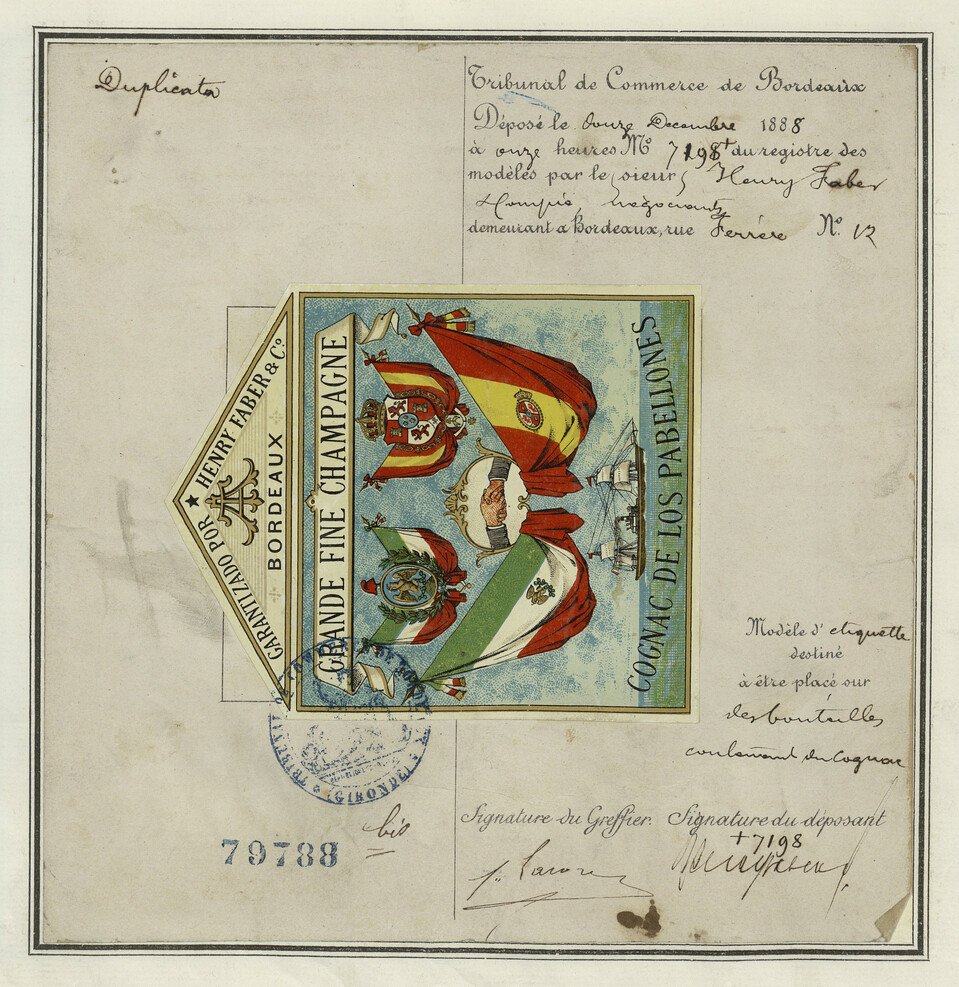 Duplicata
Tribunal de Commerce de Bordeaux
Déposé le douze Decembre 1888
à onze heures No 7198 du registre des
modèles par le sieur Henry Faber
& Compie, négociants
demeurant à Bordeaux, rue Ferrère No. 12
GARANTIZADO POR ★ HENRY FABER & Co.
BORDEAUX
GRANDE FINE CHAMPAGNE
COGNAC DE LOS PABELLONES
Modèle d'etiquette
destiné
à être placé sur
des bouteilles
contenant du Cognac
TRIBUNAL DE COMMERCE DE BORDEAUX
(GIRONDE)
79788
bis
Signature du Greffier. Signature du déposant
+7198